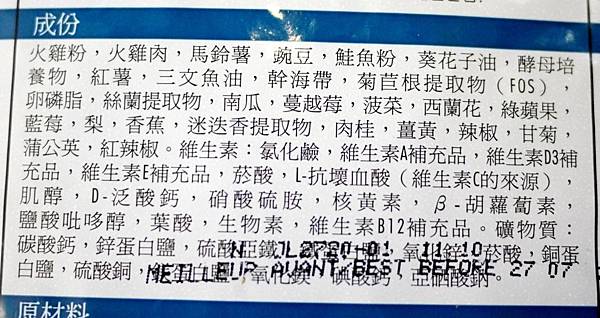 成份
火雞粉，火雞肉，馬鈴薯，豌豆，鮭魚粉，葵花子油，酵母培
養物，紅薯，三文魚油，幹海帶，菊苣根提取物（FOS），
卵磷脂，絲蘭提取物，南瓜，蔓越莓，菠菜，西蘭花，綠蘋果，
藍莓，梨，香蕉，迷迭香提取物，肉桂，薑黃，辣椒，甘菊，
蒲公英，紅辣椒。維生素：氯化鹼，維生素A補充品，維生素D3補
充品，維生素E補充品，菸酸，L-抗壞血酸（維生素C的來源），
肌醇，D-泛酸鈣，硝酸硫胺，核黃素，β-胡蘿蔔素，
鹽酸吡哆醇，葉酸，生物素，維生素B12補充品。礦物質：
碳酸鈣，鋅蛋白鹽，硫酸亞鐵，氧化鋅，菸酸，銅蛋
白鹽，硫酸銅，氧化鎂，碘酸鈣，亞硒酸鈉。
11:10
MEILLEUR AVANT/BEST BEFORE 27 07
原材料